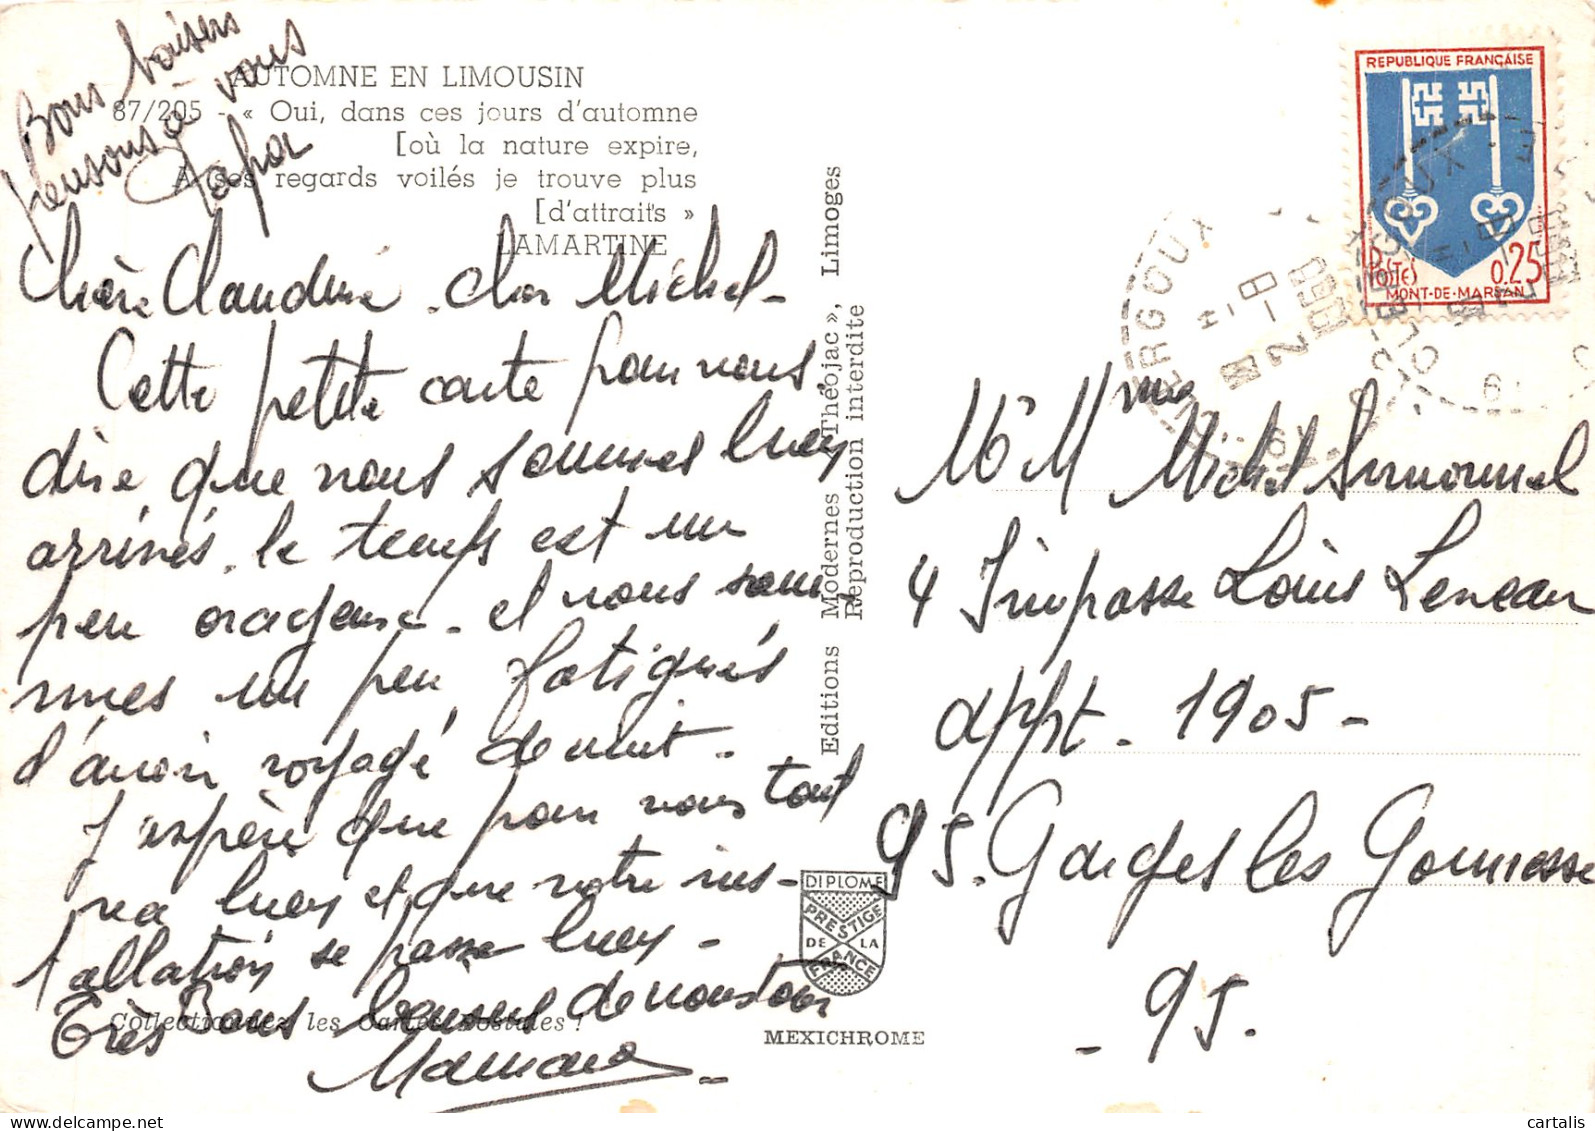 Bons baisers
pensons à vous
Papa
AUTOMNE EN LIMOUSIN
87/205 - « Oui, dans ces jours d'automne
[où la nature expire,
A ses regards voilés je trouve plus
[d'attraits »
LAMARTINE
Chère Claudine - cher Michel -
Cette petite carte pour vous
dire que nous sommes bien
arrivés. le temps est un
peu orageux - et nous som
mes un peu fatigués
d'avoir voyagé de nuit -
J'espère que pour vous tout
va bien et que votre ins-
tallation se passe bien -
Très Bons baisers de nous tous
Maman
Collectionnez les Cartes Postales !
Editions Modernes « Théojac », Limoges
Reproduction interdite
DIPLOME
PRESTIGE
DE LA
FRANCE
MEXICHROME
REPUBLIQUE FRANÇAISE
POSTES
0.25
MONT-DE-MARSAN
Mr Mme Michel
4 Impasse Louis
appt - 1905 -
95. Garges les Gonesse
- 95.
cartalis